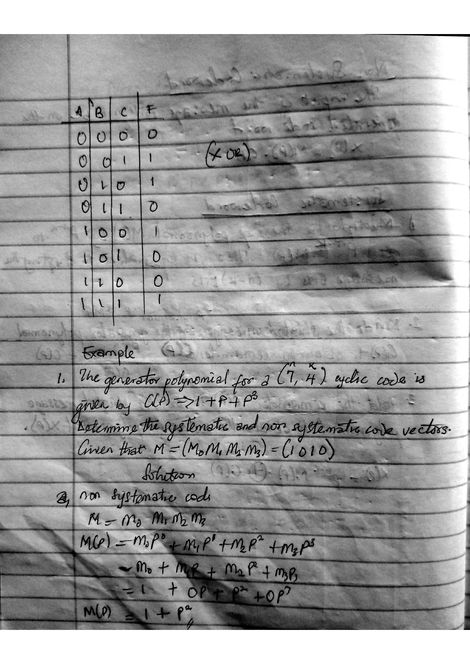 A B C F
0 0 0 0
0 0 1 1 (XOR)
0 1 0 1
0 1 1 0
1 0 0 1
1 0 1 0
1 1 0 0
1 1 1 1
Example
1. The generator polynomial for a (7, 4) cyclic code is
given by C(P) => 1 + P + P³
Determine the systematic and non systematic code vectors.
Given that M = (M₀ M₁ M₂ M₃) = (1 0 1 0)
Solution
non systematic code
M = M₀ M₁ M₂ M₃
M(P) = M₀P⁰ + M₁P¹ + M₂P² + M₃P³
= M₀ + M₁P + M₂P² + M₃P₃
= 1 + 0P + P² + 0P³
M(P) = 1 + P²